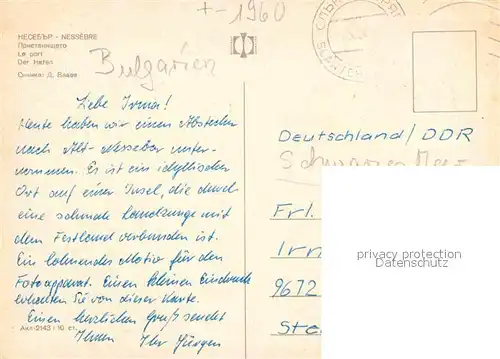 +-1960
НЕСЕБЪР - NESSÈBRE
Пристанището
Le port
Der Hafen
Снимка: Д. Влаев
Bulgarien
Liebe Irma!
Heute haben wir einen Abstecher
nach Alt-Nessebar unter-
nommen. Es ist ein idyllischer
Ort auf einer Insel, die durch
eine schmale Landzunge mit
dem Festland verbunden ist.
Ein lohnendes Motiv für den
Fotoapparat. Einen kleinen Eindruck
erhalten Sie von dieser Karte.
Einen herzlichen Gruß sendet
Ihnen Ihr Jürgen
Акл-2143 i 10 ст.
Deutschland/DDR
Schwarzes Meer
Frl.
Irm
9672
privacy protection
Datenschutz